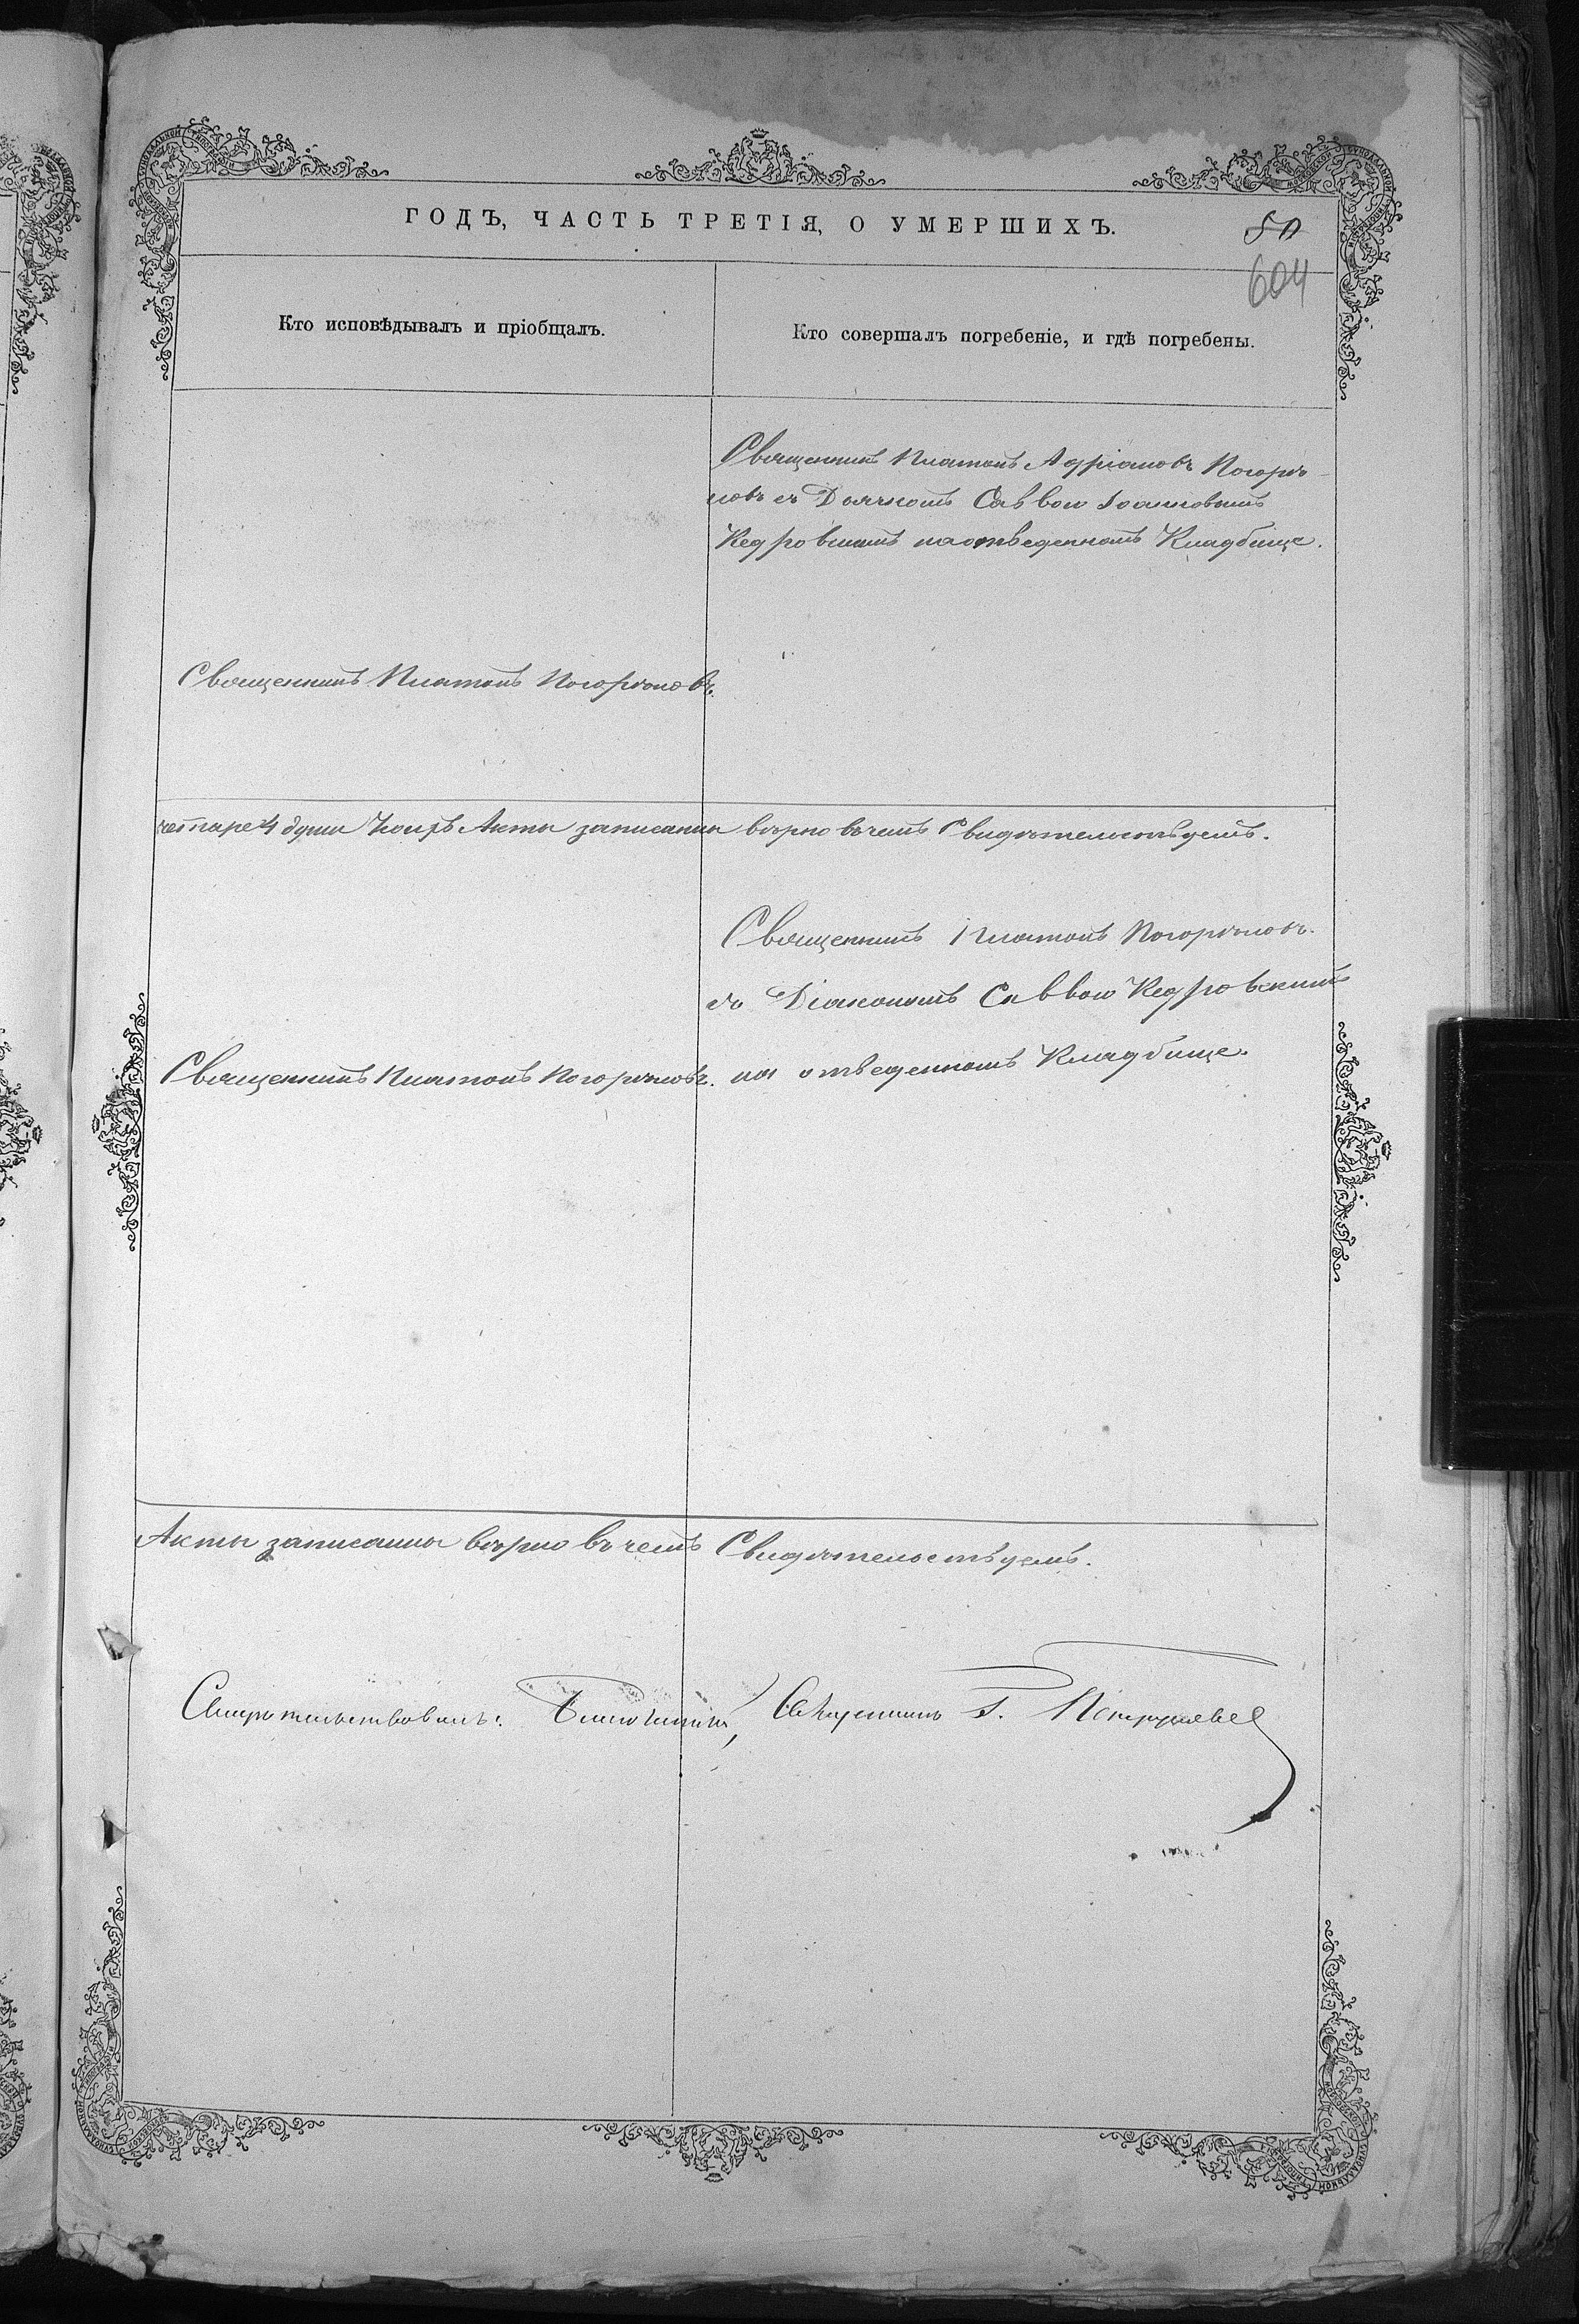 ГОДЪ, ЧАСТЬ ТРЕТІЯ, О УМЕРШИХЪ.
50
604
Кто исповѣдывалъ и пріобщалъ.
Кто совершалъ погребеніе, и гдѣ погребены.
Священникъ Платонъ Адріановъ Погорѣ-
ловъ съ Дьячкомъ Саввою Іоанновымъ
Кедровскимъ на отведенномъ Кладбище.
Священникъ Платонъ Погорѣловъ.
четыре 4 души Коихъ Акты записаны вѣрно въ чемъ Свидѣтельствуемъ.
Священникъ Платонъ Погорѣловъ.
съ Діакономъ Саввою Кедровскимъ
Священникъ Платонъ Погорѣловъ. на отведенномъ Кладбище.
Акты записанны вѣрно въ чемъ Свидѣтельствуемъ.
Свидѣтельствовалъ: Благочинный, Священникъ